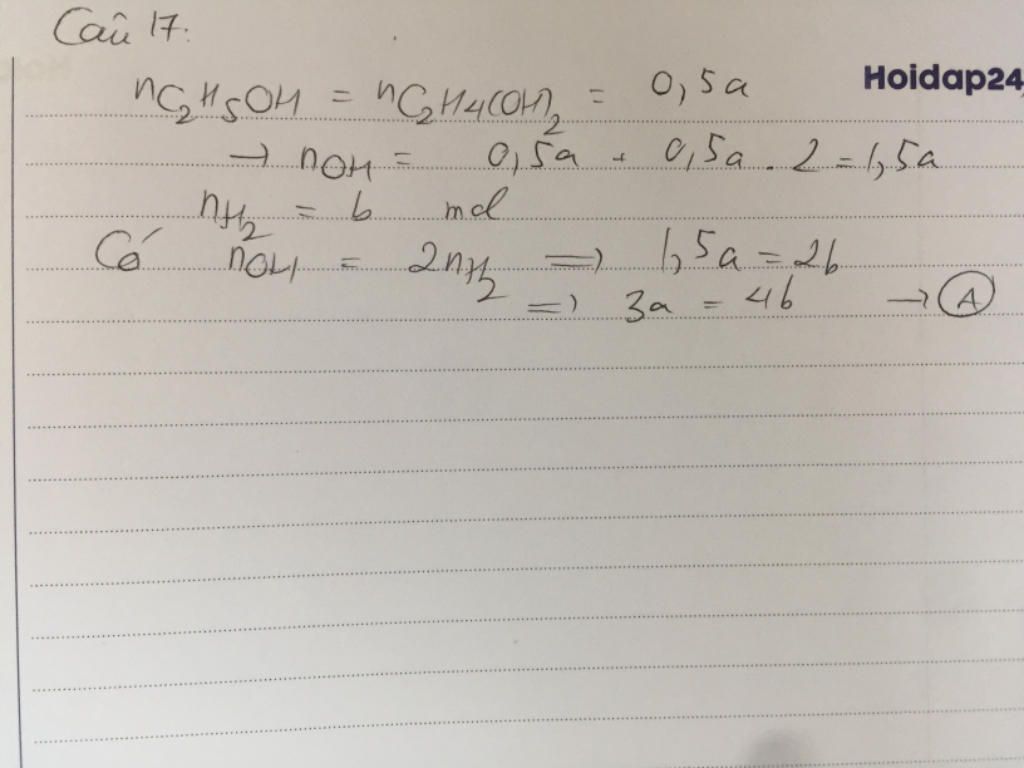 Câu 17:
Hoidap24
nC₂H₅OH = nC₂H₄(OH)₂ = 0,5a
→ nOH = 0,5a + 0,5a . 2 = 1,5a
nH₂ = b mol
Có nOH = 2nH₂ => 1,5a = 2b
=> 3a = 4b → A